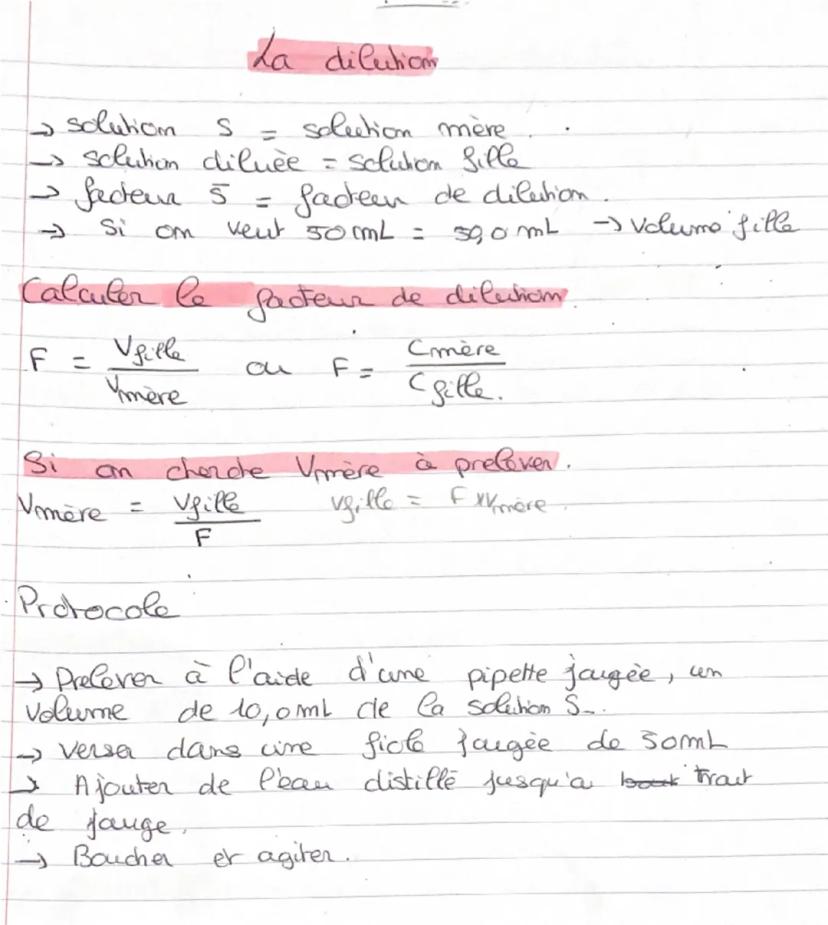 La dilution
→ solution S = solution mère.
→ solution diluée = solution fille
→ facteur 5 = facteur de dilution.
→ Si on veut 50 mL = 50,0 mL → volume fille
Calculer le facteur de dilution.
F = Vfille / Vmère ou F = Cmère / Cfille.
Si on cherche Vmère à prelever.
Vmère = Vfille / F vfille = F x Vmère.
Protocole
→ Prelever à l'aide d'une pipette jaugée, un
volume de 10,0 mL de la solution S.
→ verser dans une fiole jaugée de 50mL
→ Ajouter de l'eau distillé jusqu'a trait
de jauge.
→ Boucher et agiter.